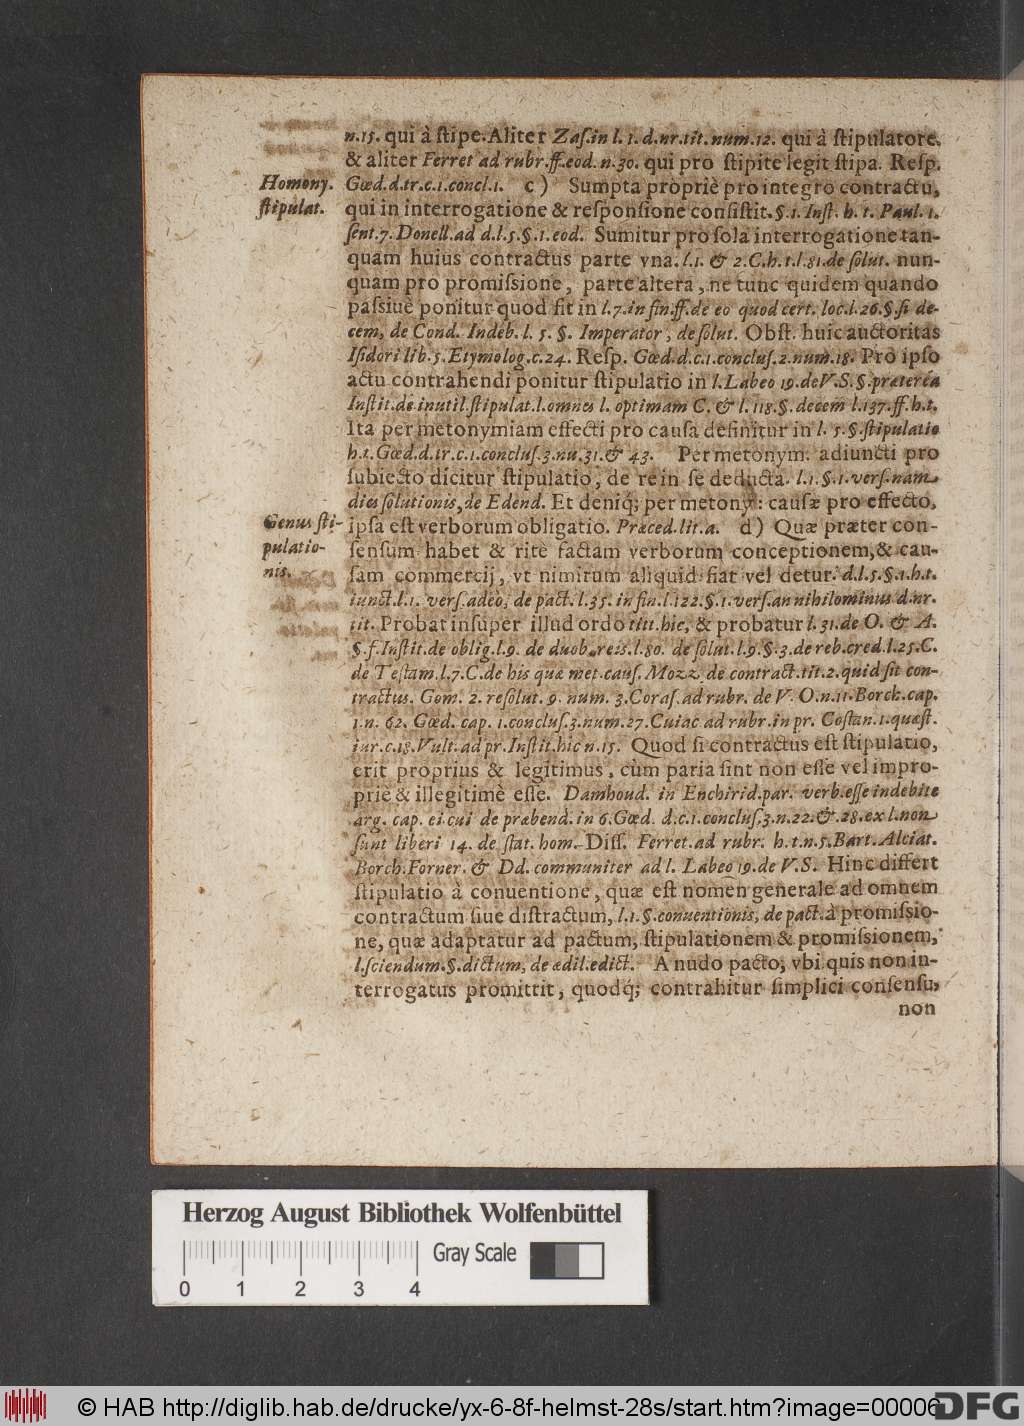 n.15. qui à ſtipe. Aliter Zaſ. in l. 1. d. nr. tit. num. 12. qui à ſtipulatore.
& aliter Ferret ad rubr. ff. eod. n. 30. qui pro ſtipite legit ſtipa. Reſp.
Homony. ſtipulat.
Gœd. d. tr. c. 1. concl. 1. c) Sumpta propriè pro integro contractu,
qui in interrogatione & reſponſione conſiſtit. §. 1. Inſt. h. t. Paul. 1.
ſent. 7. Donell. ad d. l. 5. §. 1. eod. Sumitur pro ſola interrogatione tan-
quam huius contractus parte vna. l. 1. & 2. C. h. t. l. 81. de ſolut. nun-
quam pro promiſsione, parte altera, ne tunc quidem quando
paſsiuè ponitur quod fit in l. 7. in fin. ff. de eo quod cert. loc. l. 26. §. ſi de-
cem, de Cond. Indeb. l. 5. §. Imperator, de ſolut. Obſt. huic auctoritas
Iſidori lib. 5. Etymolog. c. 24. Reſp. Gœd. d. c. 1. concluſ. 2. num. 18. Pro ipſo
actu contrahendi ponitur ſtipulatio in l. Labeo 19. de V. S. §. præterea
Inſtit. de inutil. ſtipulat. l. omnes l. optimam C. & l. 118. §. decem l. 137. ff. h. t.
Ita per metonymiam effecti pro cauſa definitur in l. 5. §. ſtipulatio
h. t. Gœd. d. tr. c. 1. concluſ. 3. nu. 31. & 43. Per metonym. adiuncti pro
ſubiecto dicitur ſtipulatio, de re in ſe deducta. l. 1. §. 1. verſ. nam
dies ſolutionis, de Edend. Et deniq; per metony: cauſæ pro effecto,
Genus ſti-
pulatio-
nis.
ipſa eſt verborum obligatio. Præced. lit. a. d) Quæ præter con-
ſenſum habet & ritè factam verborum conceptionem, & cau-
ſam commercij, vt nimirum aliquid fiat vel detur. d. l. 5. §. 1. h. t.
iunct. l. 1. verſ. adeo, de pact. l. 35. in fin. l. 122. §. 1. verſ. an nihilominus d. nr.
tit. Probat inſuper illud ordo titt. hic, & probatur l. 31. de O. & A.
§. f. Inſtit. de oblig. l. 9. de duob. reis. l. 80. de ſolut. l. 9. §. 3. de reb. cred. l. 25. C.
de Teſtam. l. 7. C. de his quæ met. cauſ. Mozz. de contract. tit. 2. quid ſit con-
tractus. Gom. 2. reſolut. 9. num. 3. Coraſ. ad rubr. de V. O. n. 11. Borch. cap.
1. n. 62. Gœd. cap. 1. concluſ. 3. num. 27. Cuiac ad rubr. in pr. Coſtan. 1. quæſt.
iur. c. 18. Vult. ad pr. Inſtit. hic n. 15. Quod ſi contractus eſt ſtipulatio,
erit proprius & legitimus, cùm paria ſint non eſſe vel impro-
priè & illegitimè eſſe. Damhoud. in Enchirid. par. verb. eſſe indebite
arg. cap. ei cui de præbend. in 6. Gœd. d. c. 1. concluſ. 3. n. 22. & 28. ex l. non
ſunt liberi 14. de ſtat. hom. Diſſ. Ferret. ad rubr. h. t. n. 5. Bart. Alciat.
Borch. Forner. & Dd. communiter ad l. Labeo 19. de V. S. Hinc differt
ſtipulatio à conuentione, quæ eſt nomen generale ad omnem
contractum ſiue diſtractum, l. 1. §. conuentionis, de pact. à promiſsio-
ne, quæ adaptatur ad pactum, ſtipulationem & promiſsionem,
l. ſciendum. §. dictum, de ædil. edict. A nudo pacto, vbi quis non in-
terrogatus promittit, quodq́; contrahitur ſimplici conſenſu,
non
Herzog August Bibliothek Wolfenbüttel
Gray Scale
0 1 2 3 4
© HAB http://diglib.hab.de/drucke/yx-6-8f-helmst-28s/start.htm?image=00006
DFG